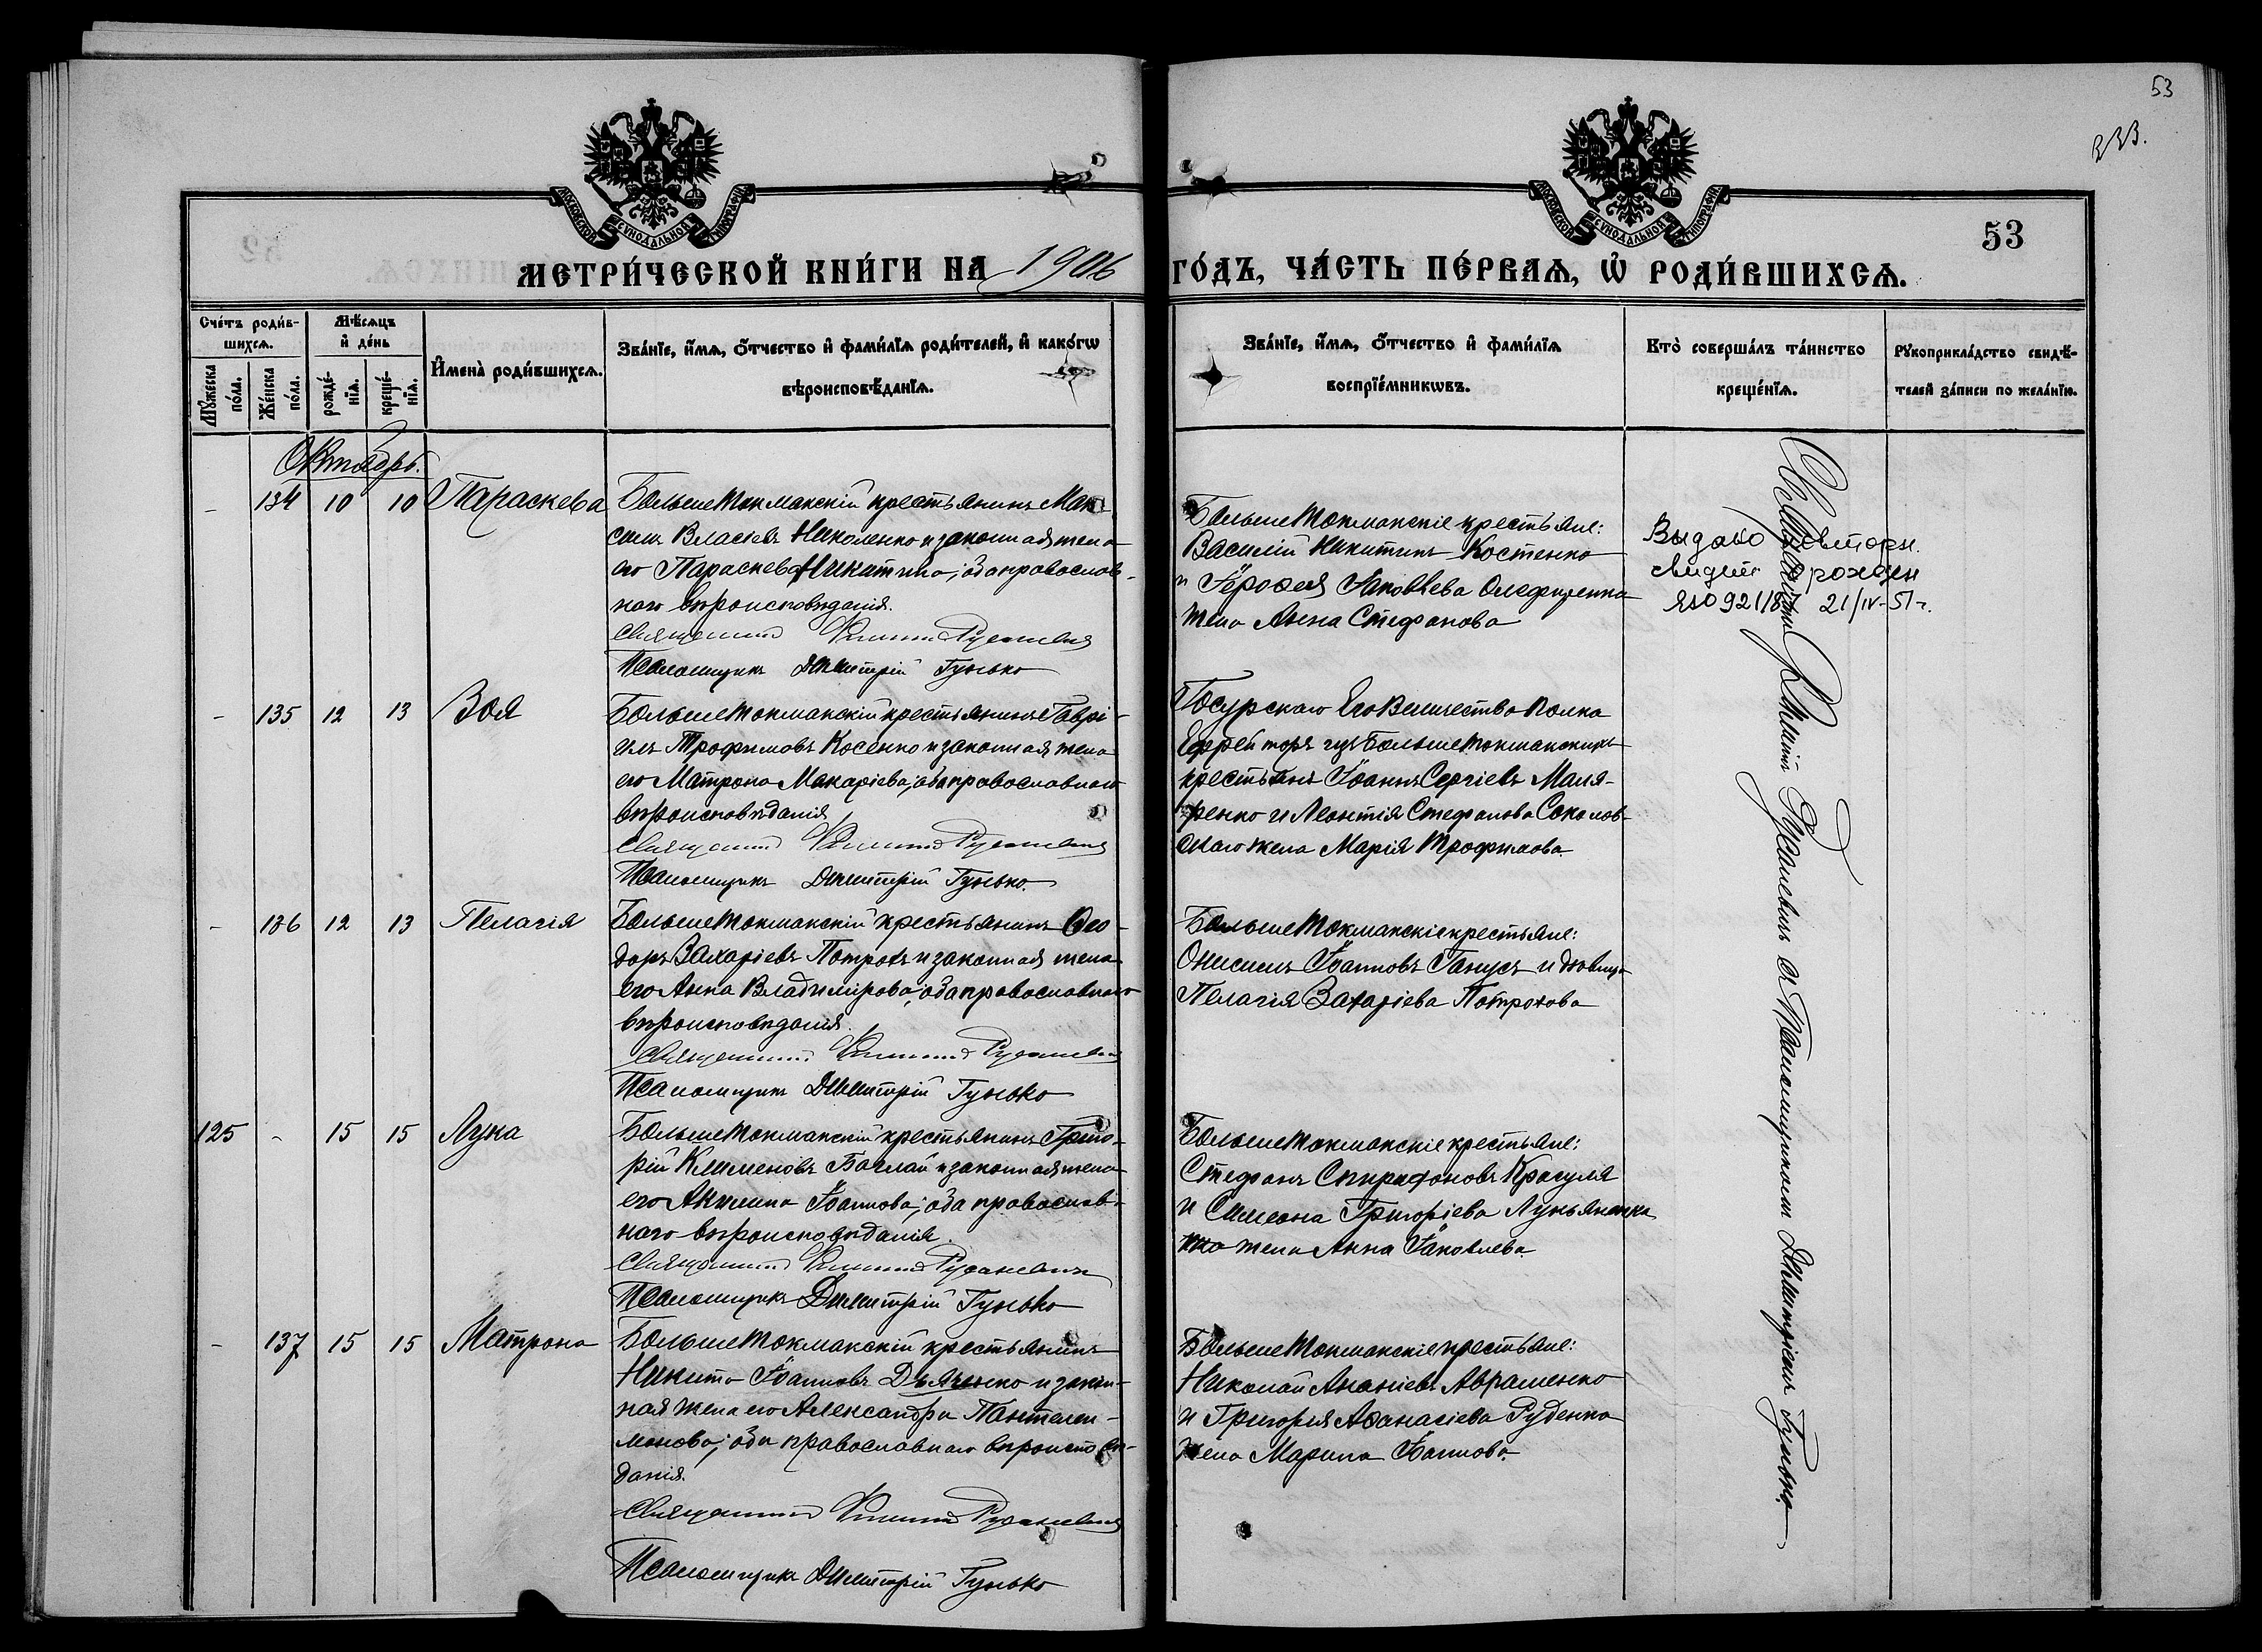 53
333.
МОСКОВСКОЙ СѴНОДАЛЬНОЙ ТИПОГРАФІИ
МОСКОВСКОЙ СѴНОДАЛЬНОЙ ТИПОГРАФІИ
53
МЕТРИ́ЧЕСКОЙ КНИ́ГИ НА 1906
ГО́ДЪ, ЧА́СТЬ ПЕ́РВАѦ, Ѡ҆ РОДИ́ВШИХСѦ.
Сче́тъ роди́в-
шихсѧ.
Мѣ́сѧцъ
и҆ де́нь
Мꙋ́жеска
по́ла.
Же́нска
по́ла.
рожде́-
нїѧ.
креще́-
нїѧ.
И҆мена̀ роди́вшихсѧ.
Зва́нїе, и҆́мѧ, ѻ҆́тчество и҆ фами́лїѧ роди́телей, и҆ како́гѡ
вѣроисповѣ́данїѧ.
Зва́нїе, и҆́мѧ, ѻ҆́тчество и҆ фами́лїѧ
воспрїе́мникѡвъ.
Кто̀ соверша́лъ та́инство
креще́нїѧ.
Рꙋкоприкла́дство свидѣ́-
телей за́писи по жела́нїю.
Октябрь.
- 134 10 10 Параскева
БольшеТокмакскій крестьянинъ Мак-
симъ Власіевъ Николенко и законная жена
его Параскева Никитина; оба православ-
наго вѣроисповѣданія.
Священникъ Филиппъ Русаневичъ
Псаломщикъ Димитрій Гунько
БольшеТокмакскіе крестьяне:
Василій Никитинъ Костенко
и Іерофея Іаковлева Олефиренка
жена Анна Стефанова
Выдано повторн.
свидет. о рожден
ЯЮ 92118 21/IV-51г.
- 135 12 13 Зоя
БольшеТокмакскій крестьянинъ Гаврі-
илъ Трофимовъ Косенко и законная жена
его Матрона Макаріева; оба православнаго
вѣроисповѣданія
Священникъ Филиппъ Русаневичъ
Псаломщикъ Димитрій Гунько.
Его Величества полка
Ефрейторъ изъ БольшеТокмакскихъ
крестьянъ Іоаннъ Сергіевъ Маля-
ренко и Леонтія Стефанова Соколов-
скаго жена Марія Трофимова.
- 136 12 13 Пелагія
БольшеТокмакскій крестьянинъ Ѳео-
доръ Захаріевъ Потрохъ и законная жена
его Анна Владимірова; оба православнаго
вѣроисповѣданія.
Священникъ Филиппъ Русаневичъ
Псаломщикъ Димитрій Гунько
БольшеТокмакскіе крестьяне:
Онисимъ Іоанновъ Ганусъ и дѣвица
Пелагія Захаріева Потрохова
125 - 15 15 Лука
БольшеТокмакскій крестьянинъ Григо-
рій Климентовъ Баглай и законная жена
его Акилина Іоаннова; оба православ-
наго вѣроисповѣданія.
Священникъ Филиппъ Русаневичъ
Псаломщикъ Димитрій Гунько
БольшеТокмакскіе крестьяне:
Стефанъ Спиридоновъ Красуля
и Симеона Григоріева Лукьяненка
жена Анна Іаковлева.
- 137 15 15 Матрона
БольшеТокмакскій крестьянинъ
Никита Іоанновъ Дьяченко и закон-
ная жена его Александра Пантелеи-
монова; оба православнаго вѣроисповѣ-
данія.
Священникъ Филиппъ Русаневичъ
Псаломщикъ Димитрій Гунько
БольшеТокмакскіе крестьяне:
Николай Ананіевъ Авраменко
и Григорія Аѳанасіева Руденка
жена Марина Іоаннова.
Священникъ Филиппъ Русаневичъ съ Псаломщикомъ Димитріемъ Гунько